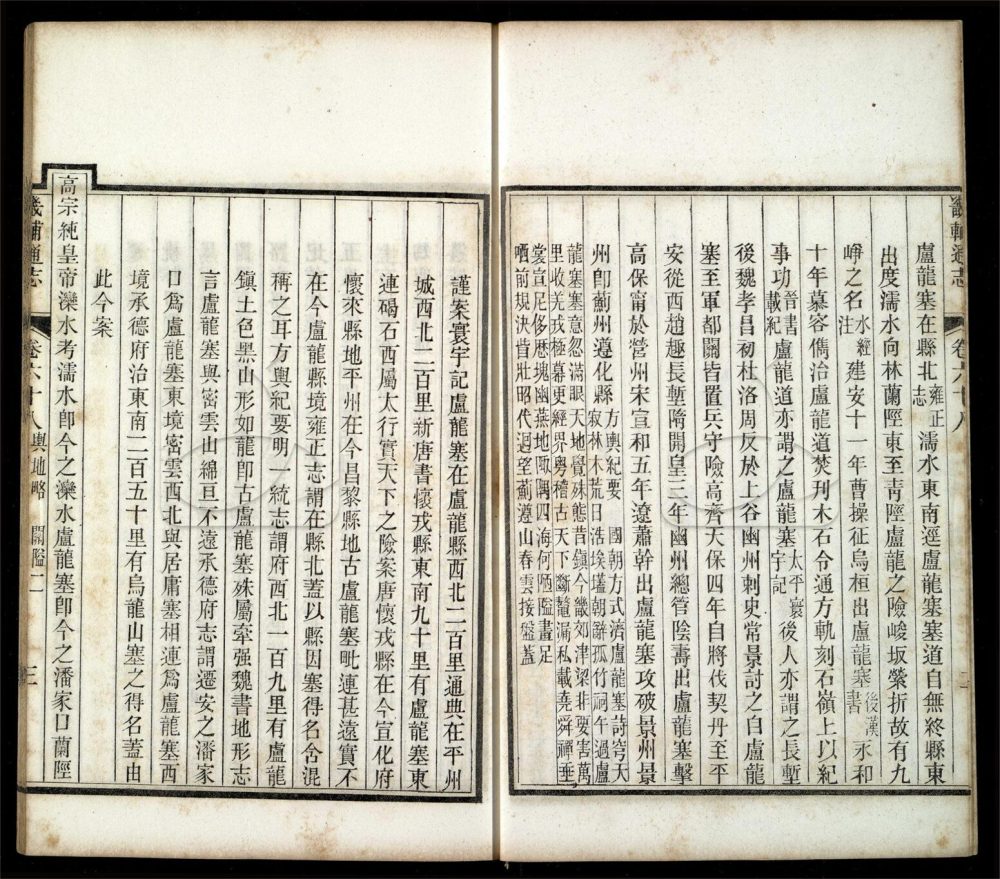 畿輔通志 卷六十八 二
盧龍塞在縣北雍正志濡水東南逕盧龍塞塞道自無終縣東
出度濡水向林蘭陘東至青陘盧龍之險峻坂縈折故有九
崢之名水經注建安十一年曹操征烏桓出盧龍塞後漢書永和
十年慕容儁治盧龍道焚刊木石令通方軌刻石嶺上以紀
事功晉書載紀盧龍道亦謂之盧龍塞太平寰宇記後人亦謂之長塹
後魏孝昌初杜洛周反於上谷幽州刺史常景討之自盧龍
塞至軍都關皆置兵守險高齊天保四年自將伐契丹至平
安從西趙趣長塹隋開皇三年幽州總管陰壽出盧龍塞擊
高保甯於營州宋宣和五年遼蕭幹出盧龍塞攻破景州景
州卽薊州遵化縣方輿紀要 國朝方式濟盧龍塞詩穹天
寂林木荒日浩埃壒朝辭孤竹祠午過盧
龍塞塞意忽滿眼天地覺殊態昔鎮今畿郊津梁非要害萬
里收羌戎極幕更經界粵稽古天下斷鼇漏私載堯舜禪垂
裳宣足侈厯塊幽燕地陬隅四海何陋隘畫足
哂前規決眥壯昭代迴望薊遵山春雲接盤蓋
謹案寰宇記盧龍塞在盧龍縣西北二百里通典在平州
城西北二百里新唐書懷戎縣東南九十里有盧龍塞東
連碣石西屬太行實天下之險案唐懷戎縣在今宣化府
懷來縣地平州在今昌黎縣地古盧龍塞毗連甚遠實不
在今盧龍縣境雍正志謂在縣北蓋以縣因塞得名含混
稱之耳方輿紀要明一統志謂府西北一百九里有盧龍
鎮土色黑山形如龍卽古盧龍塞殊屬牽强魏書地形志
言盧龍塞與密雲山綿亘不遠承德府志謂遷安之潘家
口爲盧龍塞東境密雲西北與居庸塞相連爲盧龍塞西
境承德府治東南二百五十里有烏龍山塞之得名蓋由
此今案
高宗純皇帝灤水考濡水卽今之灤水盧龍塞卽今之潘家口蘭陘
畿輔通志 卷六十八 輿地略 關隘二 三